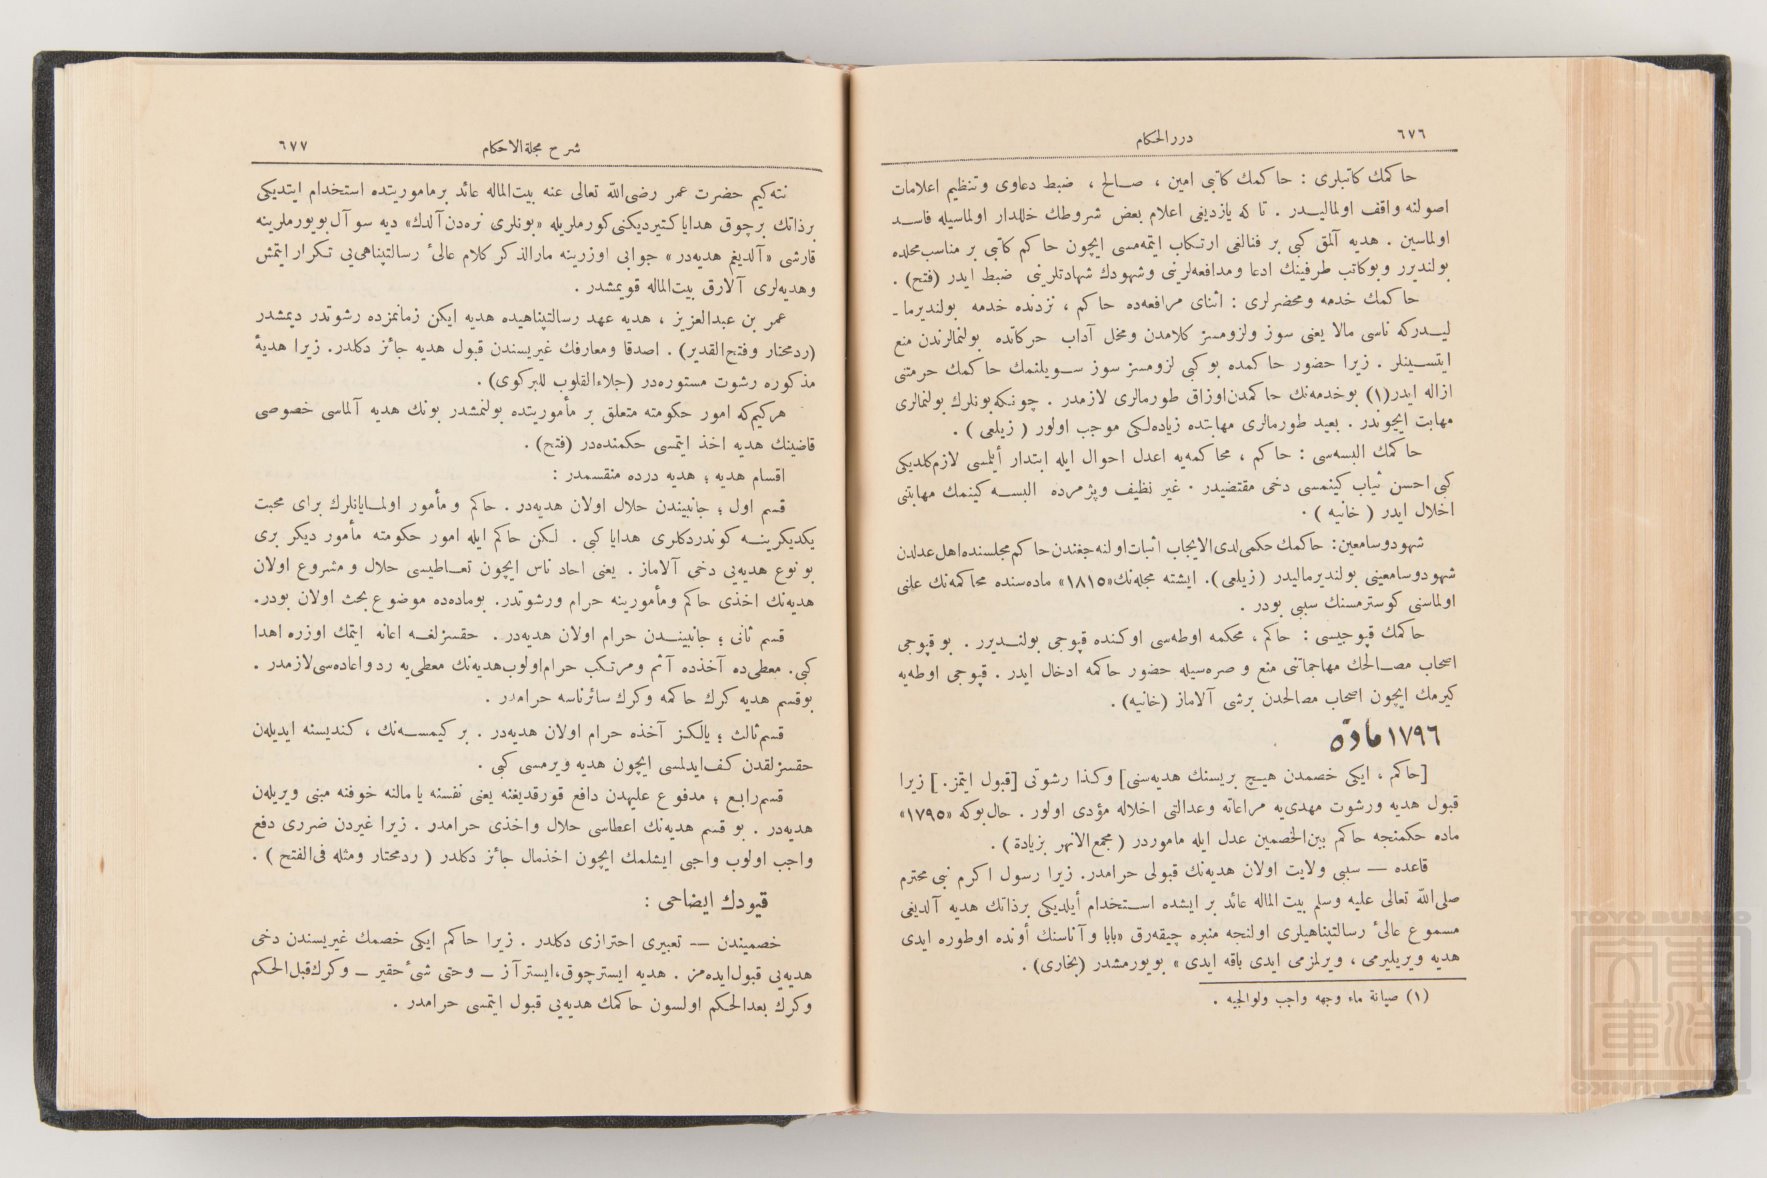 ٦٧٦
دررالحكام
حاكمك كاتبلری : حاكمك كاتبی امین ، صالح ، ضبط دعاوی وتنظیم اعلامات
اصولنه واقف اولمالیدر . تا كه یازدیغی اعلام بعض شروطك خللدار اولماسیله فاسد
اولماسین . هدیه آلمق كبی بر فنالغی ارتكاب ایتمه‌مسی ایچون حاكم كاتبی بر مناسب محلده
بولندیرر وبوكاتب طرفینك ادعا ومدافعه‌لرینی وشهودك شهادتلرینی ضبط ایدر (فتح) .
حاكمك خدمه ومحضرلری : اثنای مرافعه‌ده حاكم ، نزدنده خدمه بولندیرما -
لیدركه ناسی مالا یعنی سوز ولزومسز كلامدن ومخل آداب حركاتده بولنمالرندن منع
ایتسینلر . زیرا حضور حاكمده بوكبی لزومسز سوز سویلنمك حاكمك حرمتنی
ازاله ایدر(١) بوخدمه‌نك حاكمدن اوزاق طورمالری لازمدر . چونكه بونلرك بولنمالری
مهابت ایچوندر . بعید طورمالری مهابتده زیاده‌لكی موجب اولور ( زیلعی ) .
حاكمك البسه‌سی : حاكم ، محاكمه‌یه اعدل احوال ایله ابتدار أیلمسی لازم‌كلدیكی
كبی احسن ثیاب كینمسی دخی مقتضیدر . غیر نظیف وپژمرده البسه كینمك مهابتنی
اخلال ایدر ( خانیه ) .
شهود وسامعین: حاكمك حكمی لدی الایجاب اثبات اولنه‌جغندن حاكم مجلسنده اهل عدلدن
شهود وسامعینی بولندیرمالیدر (زیلعی). ایشته مجله‌نك «١٨١٥» ماده‌سنده محاكمه‌نك علنی
اولماسنی كوسترمسنك سببی بودر .
حاكمك قپوجیسی : حاكم ، محكمه اوطه‌سی اوكنده قپوجی بولندیرر . بو قپوجی
اصحاب مصالحك مهاجماتنی منع و صره‌سیله حضور حاكمه ادخال ایدر . قپوجی اوطه‌یه
كیرمك ایچون اصحاب مصالحدن برشی آلاماز (خانیه) .
١٧٩٦ مادّه
[حاكم ، ایكی خصمدن هیچ بریسنك هدیه‌سنی] وكذا رشوتی [قبول ایتمز.] زیرا
قبول هدیه ورشوت مهدی‌یه مراعاته وعدالتی اخلاله مؤدی اولور . حال‌بوكه «١٧٩٥»
ماده حكمنجه حاكم بین‌الخصمین عدل ایله ماموردر ( مجمع‌الانهر بزیادة ) .
قاعده — سببی ولایت اولان هدیه‌نك قبولی حرامدر. زیرا رسول اكرم نبی محترم
صلی‌اللّه تعالی علیه وسلم بیت الماله عائد بر ایشده استخدام أیلدیكی برذاتك هدیه آلدیغی
مسموع عالیٔ رسالتپناهیلری اولنجه منبره چیقه‌رق «بابا وآناسنك أونده اوطوره ایدی
هدیه ویریلیرمی ، ویرلمزمی ایدی باقه ایدی » بویورمشدر (بخاری) .
(١) صیانة ماء وجهه واجب ولوالجیه .
شرح مجلةالاحكام
٦٧٧
نته‌كیم حضرت عمر رضی‌اللّه تعالی عنه بیت‌الماله عائد برماموریتده استخدام ایتدیكی
برذاتك برچوق هدایا كتیردیكنی كورملریله «بونلری نره‌دن آلدك» دیه سوآل بویورملرینه
قارشی «آلدیغم هدیه‌در» جوابی اوزرینه مارالذكر كلام عالیٔ رسالتپناهی‌یی تكرار ایتمش
وهدیه‌لری آلارق بیت‌الماله قویمشدر .
عمر بن عبدالعزیز ، هدیه عهد رسالتپناهیده هدیه ایكن زمانمزده رشوتدر دیمشدر
(ردمحتار وفتح‌القدیر) . اصدقا ومعارفك غیریسندن قبول هدیه جائز دكلدر. زیرا هدیهٔ
مذكوره رشوت مستوره‌در (جلاءالقلوب للبركوی) .
هركیم‌كه امور حكومته متعلق بر مأموریتده بولنمشدر بونك هدیه آلماسی خصوصی
قاضینك هدیه اخذ ایتمسی حكمنده‌در (فتح) .
اقسام هدیه ؛ هدیه درده منقسمدر :
قسم اول ؛ جانبیندن حلال اولان هدیه‌در . حاكم ومأمور اولمایانلرك برای محبت
یكدیكرینه كوندردكلری هدایا كبی . لكن حاكم ایله امور حكومته مأمور دیكر بری
بو نوع هدیه‌یی دخی آلاماز . یعنی احاد ناس ایچون تعاطیسی حلال ومشروع اولان
هدیه‌نك اخذی حاكم ومأمورینه حرام ورشوتدر. بوماده‌ده موضوع بحث اولان بودر.
قسم ثانی ؛ جانبیندن حرام اولان هدیه‌در . حقسزلغه اعانه ایتمك اوزره اهدا
كبی. معطی‌ده آخذده آثم ومرتكب حرام‌اولوب‌هدیه‌نك معطی‌یه رد واعاده‌سی لازمدر .
بوقسم هدیه كرك حاكمه وكرك سائرناسه حرامدر .
قسم ثالث ؛ یالكز آخذه حرام اولان هدیه‌در . بر كیمسه‌نك ، كندیسنه ایدیله‌ن
حقسزلقدن كف‌ایدلمسی ایچون هدیه ویرمسی كبی .
قسم رابع ؛ مدفوع علیهدن دافع قورقدیغنه یعنی نفسنه یا مالنه خوفنه مبنی ویریله‌ن
هدیه‌در . بو قسم هدیه‌نك اعطاسی حلال واخذی حرامدر . زیرا غیردن ضرری دفع
واجب اولوب واجبی ایشلمك ایچون اخذمال جائز دكلدر ( ردمحتار ومثله فی‌الفتح ) .
قیودك ایضاحی :
خصمیندن — تعبیری احترازی دكلدر . زیرا حاكم ایكی خصمك غیریسندن دخی
هدیه‌یی قبول‌ایده‌مز . هدیه ایسترچوق،ایسترآز ـ وحتی شیٔ حقیر ـ وكرك‌قبل‌الحكم
وكرك بعدالحكم اولسون حاكمك هدیه‌یی قبول ایتمسی حرامدر .
TOYO BUNKO
東洋
文庫
TOYO BUNKO